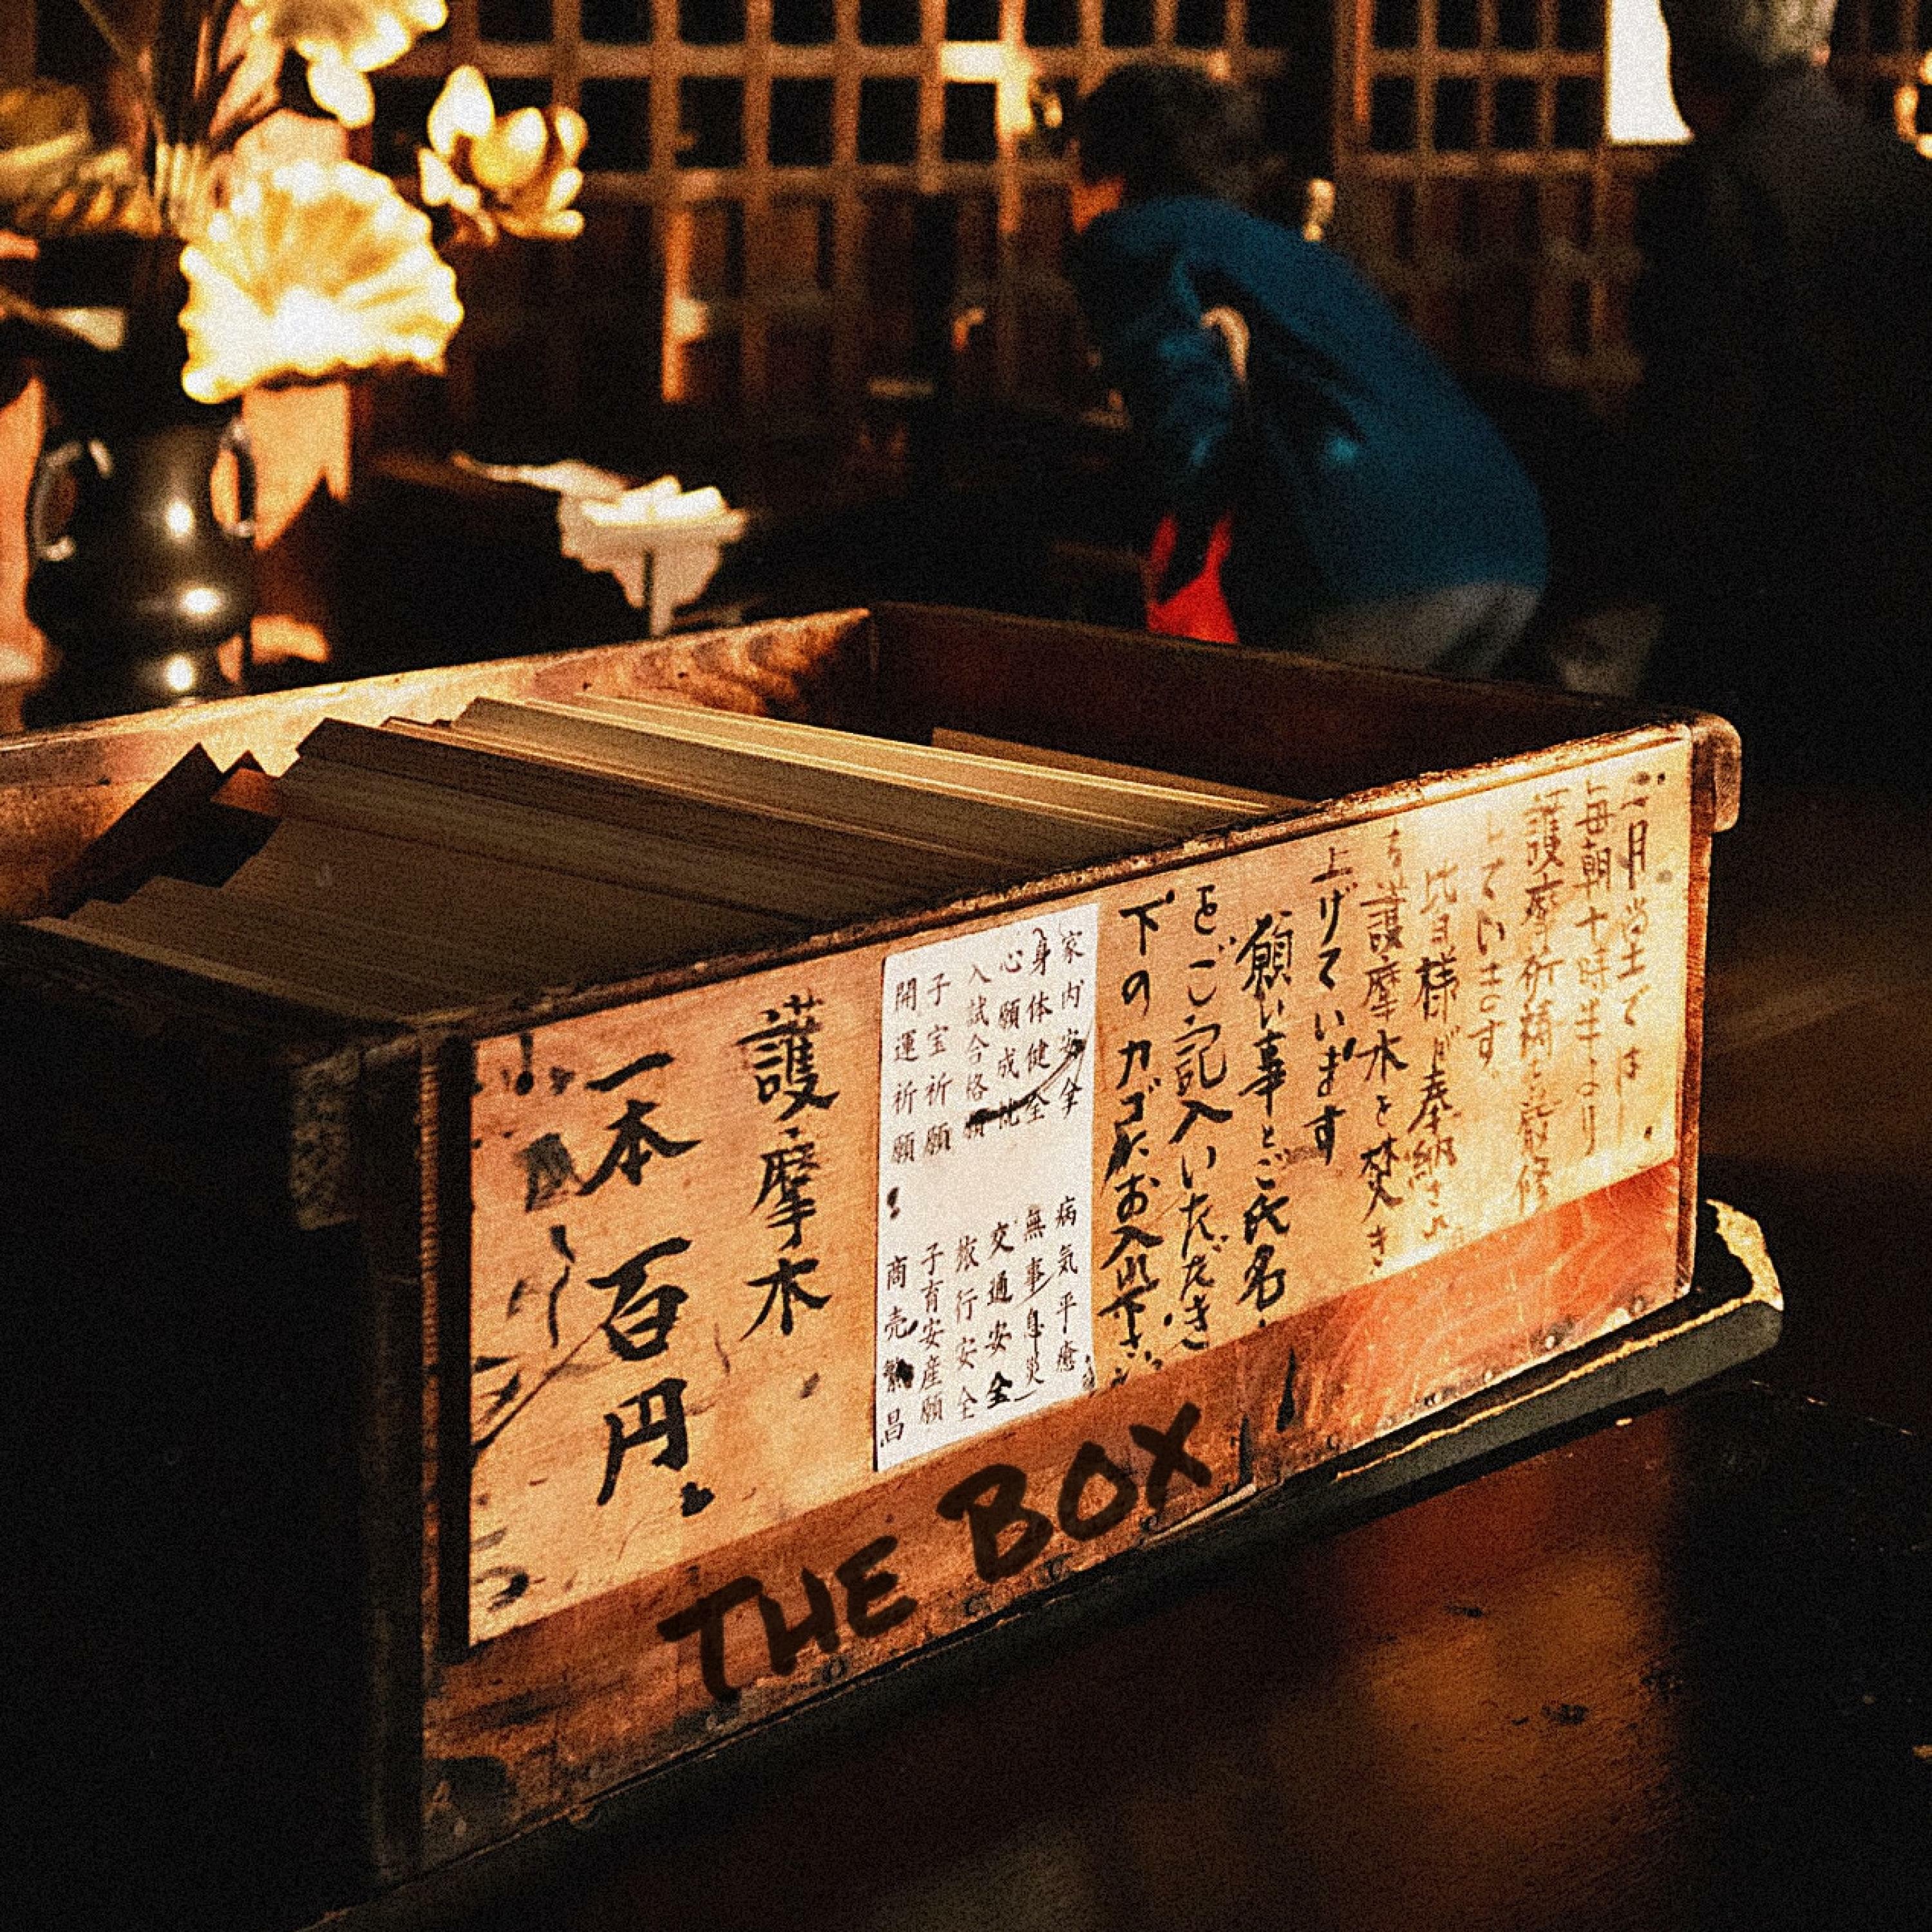 二月堂では
毎朝十時半より
護摩祈祷を厳修
しています
皆様が奉納され
る護摩木を焚き
上げています
願い事とご氏名
をご記入いただき
下のカゴにお入れ下さい
家内安全 病気平癒
身体健全 無事息災
心願成就 交通安全
入試合格 旅行安全
子宝祈願 子育安産願
開運祈願 商売繁昌
護摩木
一本 百円
THE BOX